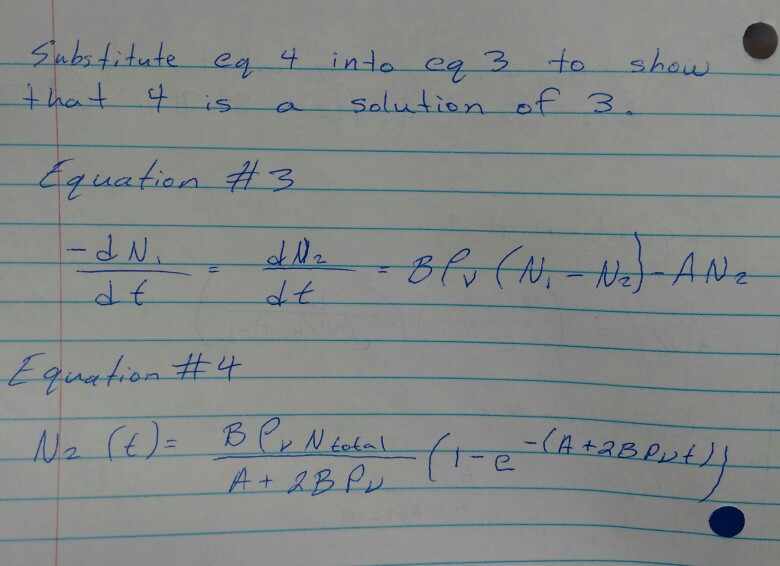 Substitute eq 4 into eq 3 to show
that 4 is a solution of 3.
Equation #3
-dN₁/dt = dN₂/dt = Bρᵥ(N₁ - N₂) - AN₂
Equation #4
N₂(t) = BρᵥN total / A + 2Bρᵥ (1 - e^-(A + 2Bρᵥt))